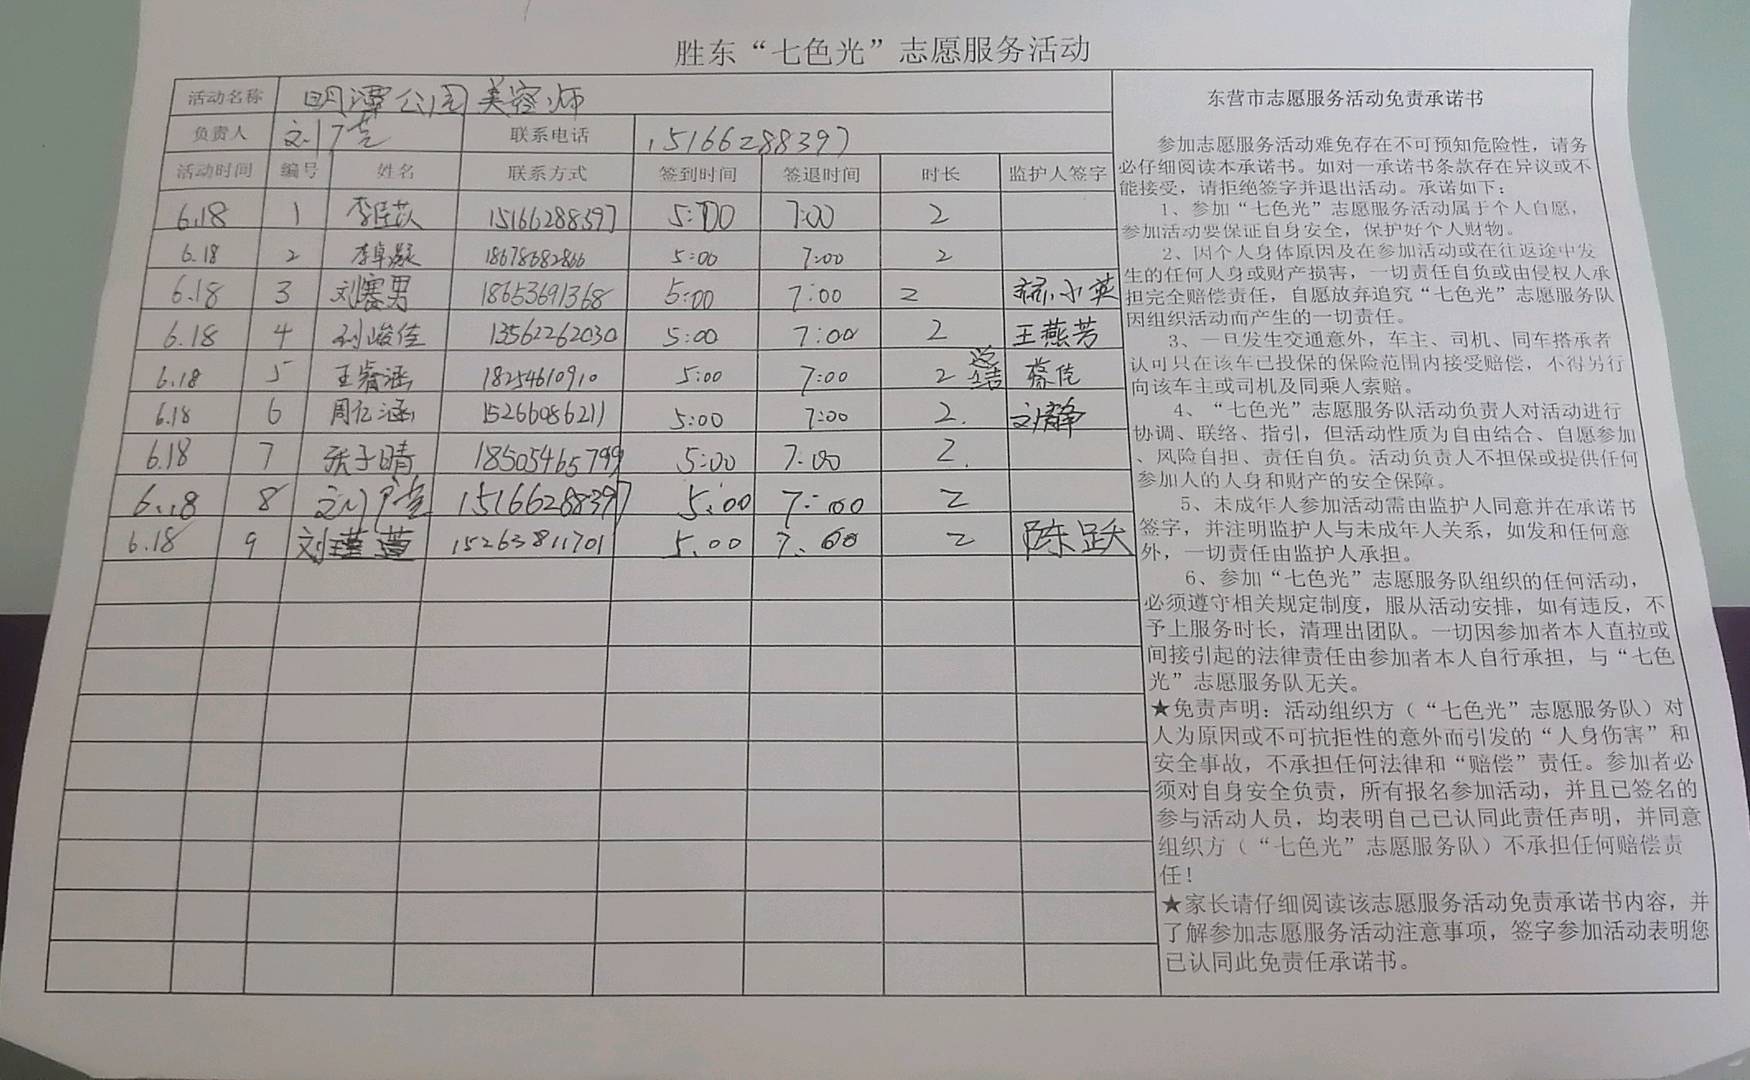 胜东“七色光”志愿服务活动
活动名称 明潭公园美容师
负责人 联系电话 15166288397
活动时间 编号 姓名 联系方式 签到时间 签退时间 时长 监护人签字
6.18 1 15166288397 5:00 7:00 2
6.18 2 李卓凝 18678682866 5:00 7:00 2
6.18 3 刘赛男 18653691368 5:00 7:00 2
6.18 4 刘峻佳 13562262030 5:00 7:00 2 王燕芳
6.18 5 王睿涵 18254610910 5:00 7:00 2 总结
6.18 6 周忆涵 15266086211 5:00 7:00 2. 刘静
6.18 7 张子晴 18505465799 5:00 7:00 2.
6.18 8 15166288397 5:00 7:00 2
6.18 9 15263811701 5.00 7.00 2 陈跃
东营市志愿服务活动免责承诺书
参加志愿服务活动难免存在不可预知危险性，请务
必仔细阅读本承诺书。如对一承诺书条款存在异议或不
能接受，请拒绝签字并退出活动。承诺如下：
1、参加“七色光”志愿服务活动属于个人自愿，
参加活动要保证自身安全，保护好个人财物。
2、因个人身体原因及在参加活动或在往返途中发
生的任何人身或财产损害，一切责任自负或由侵权人承
担完全赔偿责任，自愿放弃追究“七色光”志愿服务队
因组织活动而产生的一切责任。
3、一旦发生交通意外，车主、司机、同车搭承者
认可只在该车已投保的保险范围内接受赔偿，不得另行
向该车主或司机及同乘人索赔。
4、“七色光”志愿服务队活动负责人对活动进行
协调、联络、指引，但活动性质为自由结合、自愿参加
、风险自担、责任自负。活动负责人不担保或提供任何
参加人的人身和财产的安全保障。
5、未成年人参加活动需由监护人同意并在承诺书
签字，并注明监护人与未成年人关系，如发和任何意
外，一切责任由监护人承担。
6、参加“七色光”志愿服务队组织的任何活动，
必须遵守相关规定制度，服从活动安排，如有违反，不
予上服务时长，清理出团队。一切因参加者本人直拉或
间接引起的法律责任由参加者本人自行承担，与“七色
光”志愿服务队无关。
★免责声明：活动组织方（“七色光”志愿服务队）对
人为原因或不可抗拒性的意外而引发的“人身伤害”和
安全事故，不承担任何法律和“赔偿”责任。参加者必
须对自身安全负责，所有报名参加活动，并且已签名的
参与活动人员，均表明自己已认同此责任声明，并同意
组织方（“七色光”志愿服务队）不承担任何赔偿责
任！
★家长请仔细阅读该志愿服务活动免责承诺书内容，并
了解参加志愿服务活动注意事项，签字参加活动表明您
已认同此免责任承诺书。